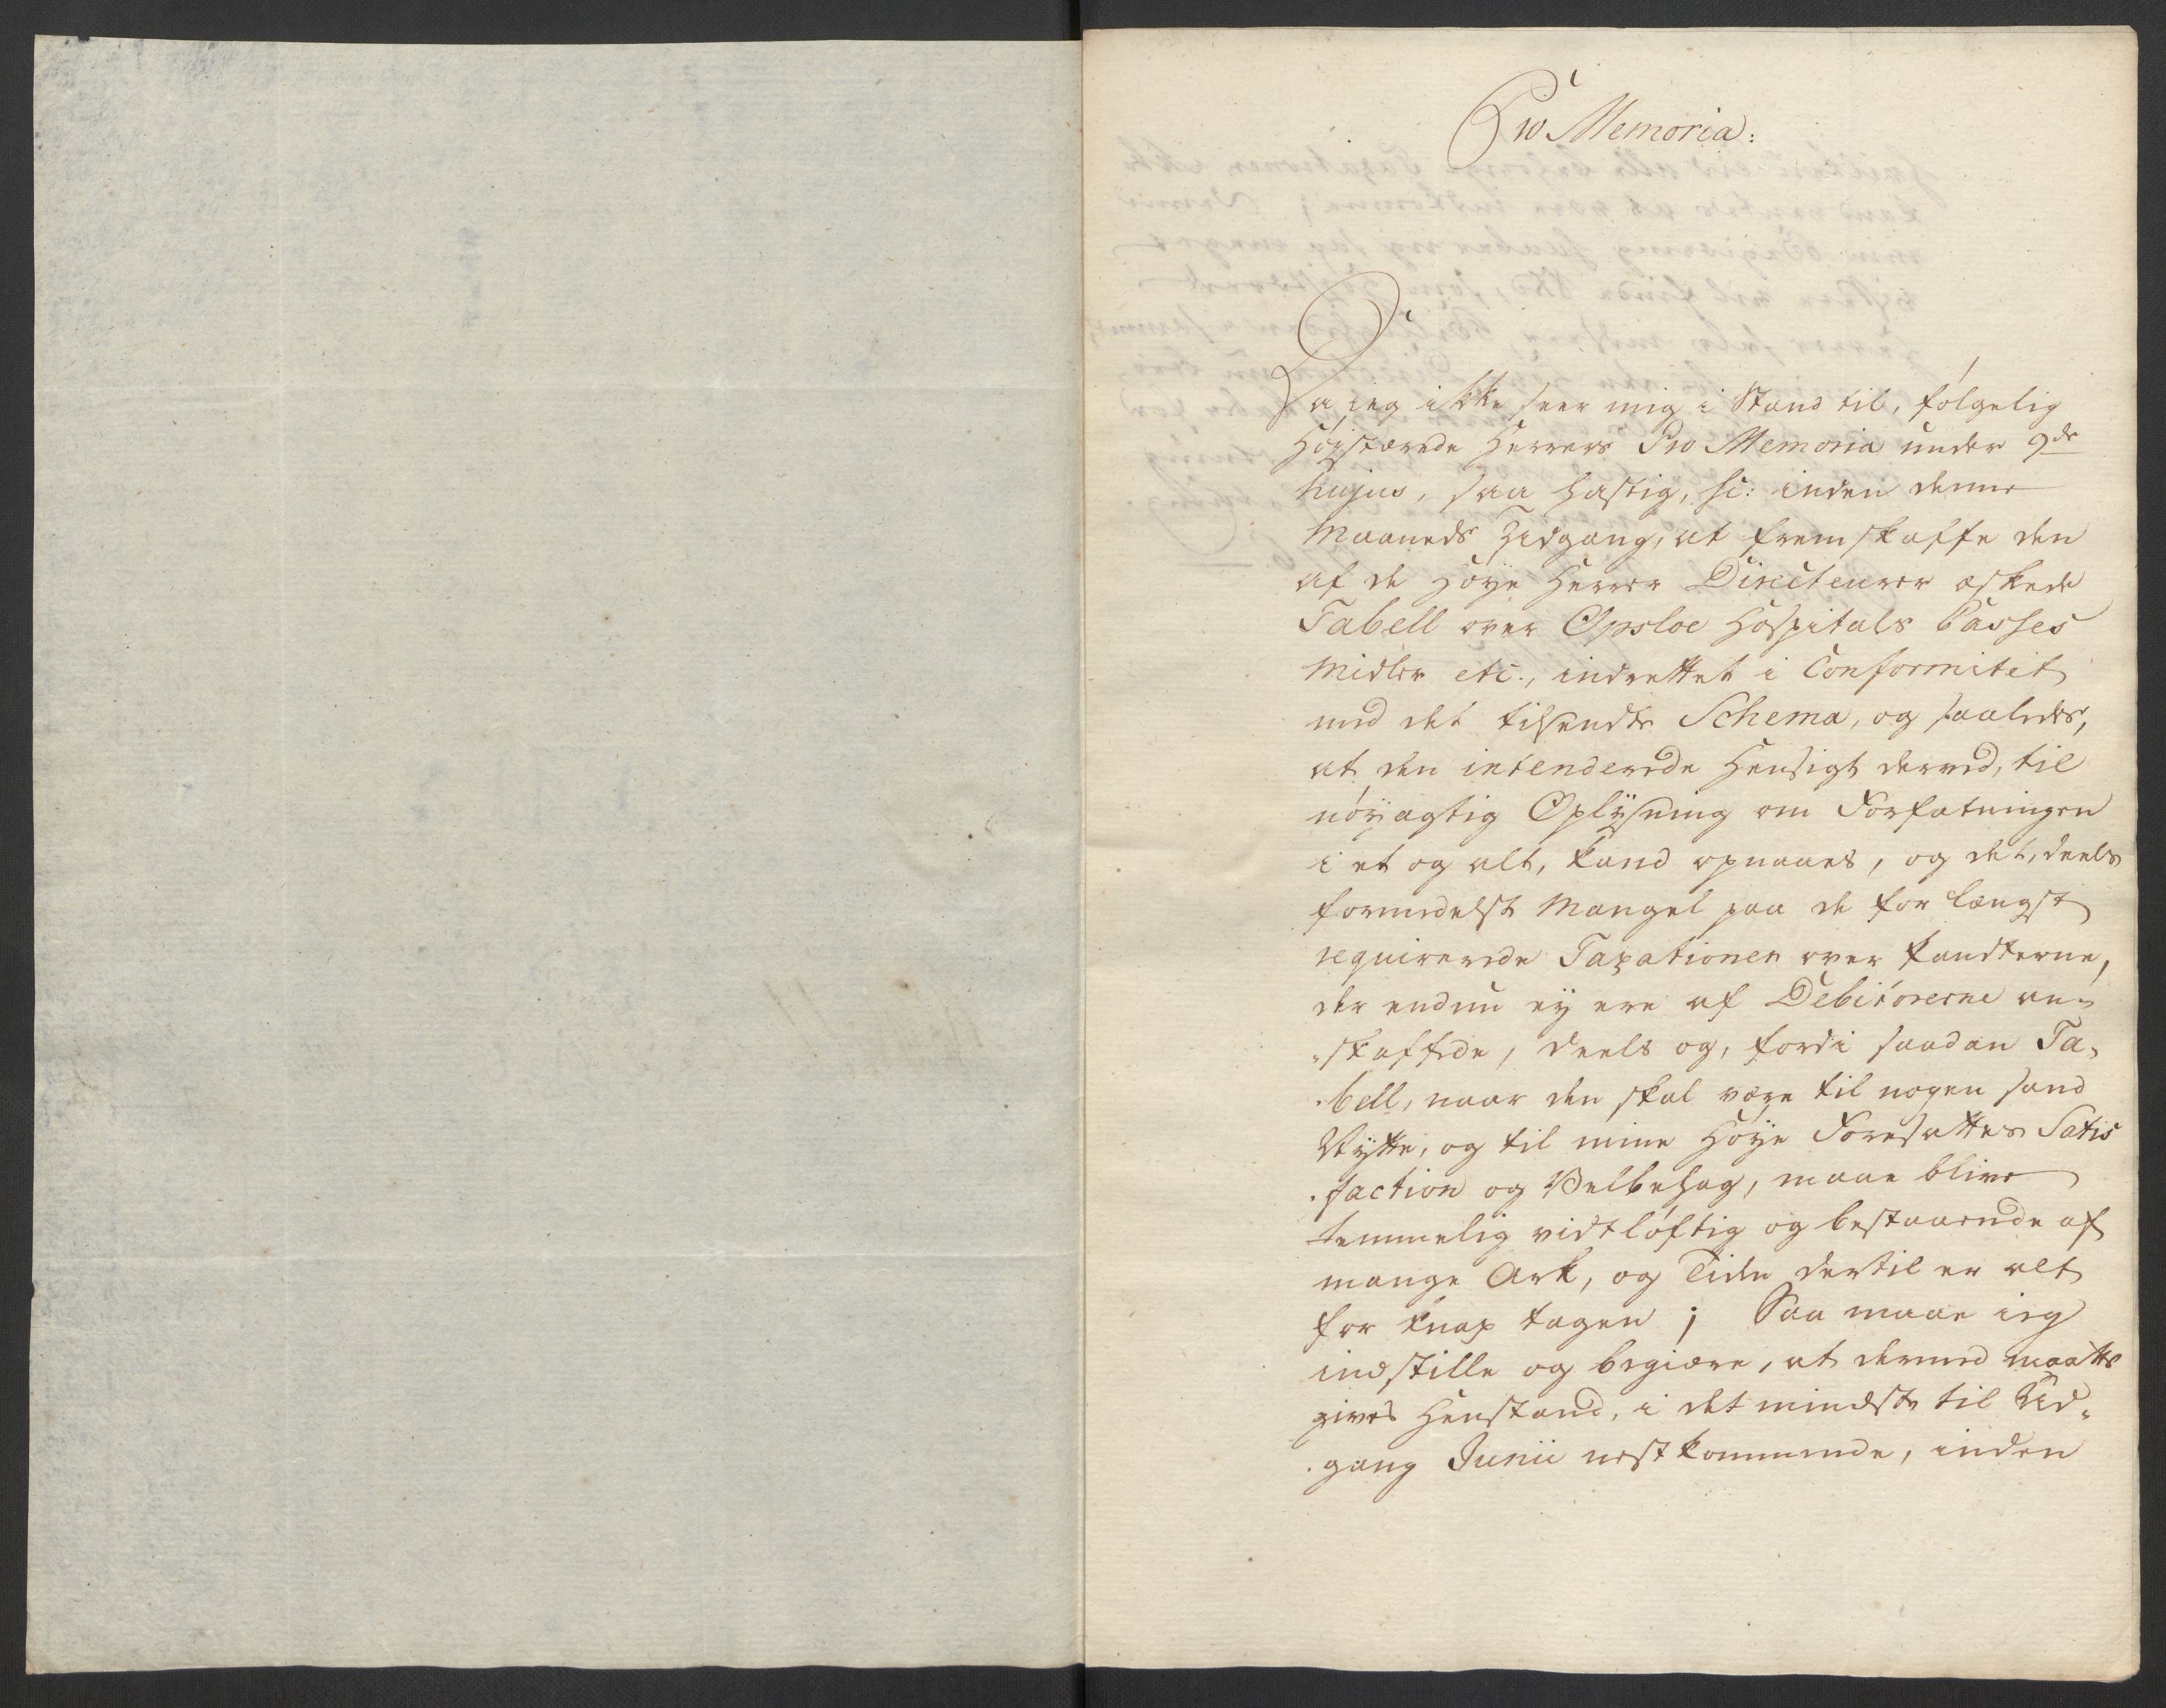 Pro Memoria:
Da jeg ikke seer mig i Stand til, følgelig
Høystærede Herrers Pro Memoria under 9de
hujus, saa hastig, sc: inden denne
Maaneds Udgang, at fremskaffe den
af de Høye Herrer Directeurer æskede
Tabell over Opsloe Hospitals Casses
Midler etc., indrettet i Conformitet
med det tilsendte Schema, og saaledes,
at den intenderede Hensigt derved, til
nøyagtig Oplysning om Forfatningen
i et og alt, kand opnaaes, og det, deels
formedelst Mangel paa de for længst
requirerede Taxationer over Pandterne,
der endnu ey ere af Debitorerne an-
skaffede, deels og, fordi saadan Ta-
bell, naar den skal være til nogen sand
Nytte, og til mine Høye Foresattes Satis
faction og Velbehag, maae blive
temmelig vidtløftig og bestaaende af
mange Ark, og Tiden dertil er alt
for knap tagen; Saa maae jeg
indstille og begiære, at dermed maatte
gives Henstand, i det mindste til Ud-
gang Junii nestkommende, inden